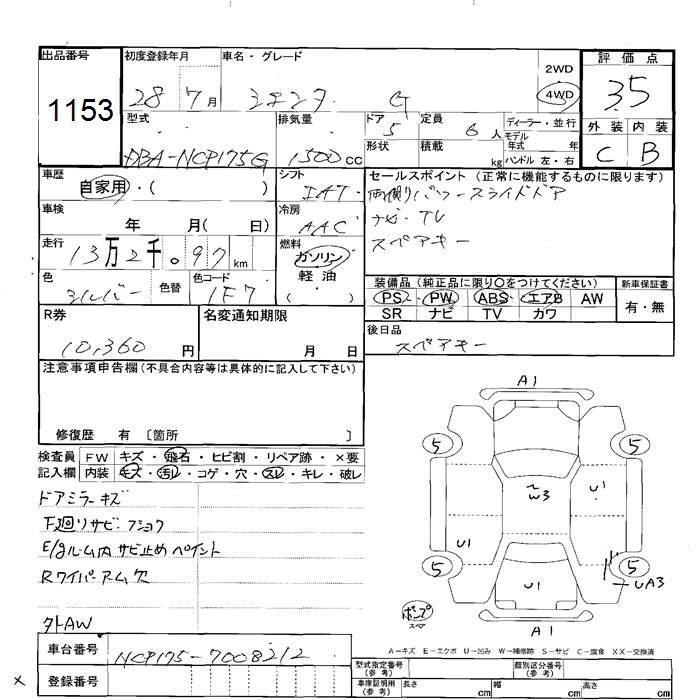 出品番号
1153
初度登録年月
28 7月
車名・グレード
シエンタ G
2WD
4WD
評価点
3.5
外装 内装
C B
型式
DBA-NCP175G
排気量
1500cc
ドア
5
定員
6人
ディーラー・並行
モデル年式 年
形状
積載 kg
ハンドル 左・右
車歴
自家用・( )
シフト
IAT
セールスポイント(正常に機能するものに限ります)
両側パワースライドドア
ナビ・TV
スペアキー
車検
年 月( 日)
冷房
AAC
走行
13万2千097km
燃料
ガソリン
軽・油
( )
色
シルバー
色替
色コード
1F7
装備品(純正品に限り〇をつけてください)
PS・PW・ABS・エアB・AW
SR・ナビ・TV・カワ
新車保証書
有・無
R券
10,360円
名変通知期限
月 日
後日品
スペアキー
注意事項申告欄(不具合内容等は具体的に記入して下さい)
修復歴 有〔箇所 〕
検査員記入欄
FW キズ・飛石・ヒビ割・リペア跡・×要
内装 キズ・汚レ・コゲ・穴・スレ・キレ・破レ
ドアミラーキズ
F廻りサビ・フショク
E/gルーム内サビ止めペイント
Rワイパーアーム欠
外AW
A1
5
5
W3
U1
U1
5
5
U1
UA3
ポンプ
スペア
A1
A-キズ E-エクボ U-凹み W-補修跡 S-サビ C-腐食 XX-交換済
車台番号
NCP175-7008212
× 登録番号
型式指定番号(参考)
類別区分番号(参考)
車庫証明用(参考)
長さ cm
幅 cm
高さ cm